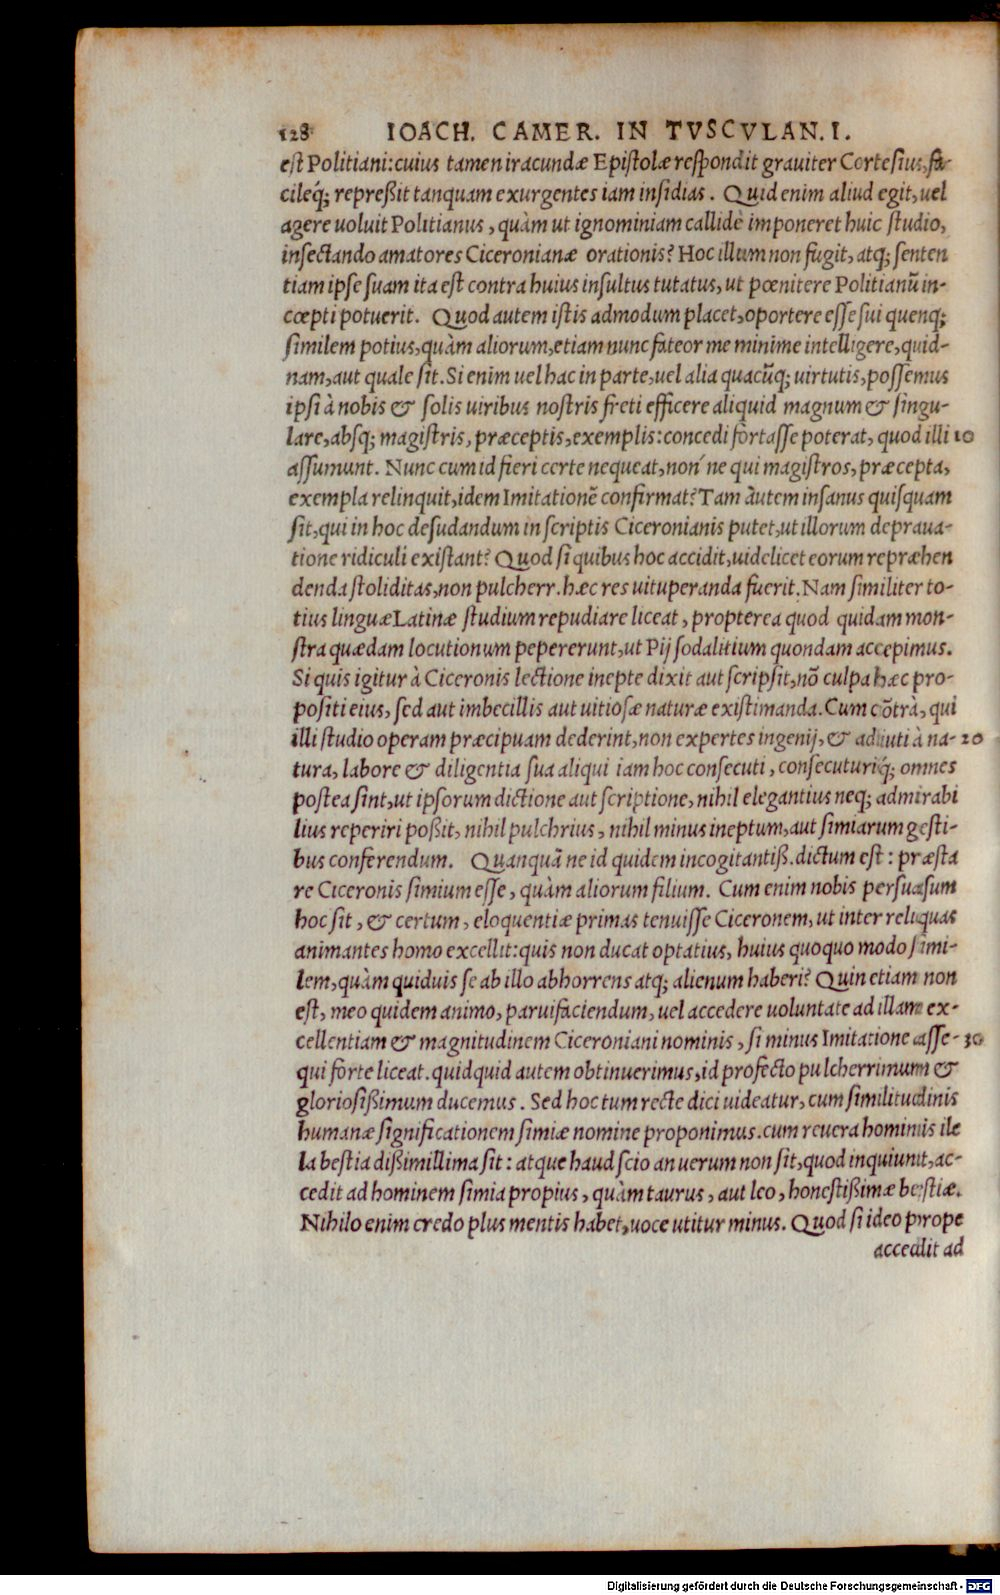 128 IOACH. CAMER. IN TVSCVLAN. I.
est Politiani: cuius tamen iracundæ Epistolæ respondit grauiter Cortesius, fa-
cileq́; repreßit tanquam exurgentes iam insidias. Quid enim aliud egit, uel
agere uoluit Politianus, quàm ut ignominiam callidè imponeret huic studio,
insectando amatores Ciceronianæ orationis? Hoc illum non fugit, atq; senten
tiam ipse suam ita est contra huius insultus tutatus, ut pœnitere Politianũ in-
cœpti potuerit. Quod autem istis admodum placet, oportere esse sui quenq;
similem potius, quàm aliorum, etiam nunc fateor me minime intelligere, quid-
nam, aut quale sit. Si enim uel hac in parte, uel alia quacũq; uirtutis, possemus
ipsi à nobis & solis uiribus nostris freti efficere aliquid magnum & singu-
lare, absq; magistris, præceptis, exemplis: concedi fortasse poterat, quod illi 10
assumunt. Nunc cum id fieri certe nequeat, non´ne qui magistros, præcepta,
exempla relinquit, idem Imitationẽ confirmat? Tam àutem insanus quisquam
sit, qui in hoc desudandum in scriptis Ciceronianis putet, ut illorum depraua-
tione ridiculi existant? Quod si quibus hoc accidit, uidelicet eorum repræhen
denda stoliditas, non pulcherr. hæc res uituperanda fuerit. Nam similiter to-
tius linguæ Latinæ studium repudiare liceat, propterea quod quidam mon-
stra quædam locutionum pepererunt, ut Pij sodalitium quondam accepimus.
Si quis igitur à Ciceronis lectione inepte dixit aut scripsit, nõ culpa hæc pro-
positi eius, sed aut imbecillis aut uitiosæ naturæ existimanda. Cum cõtrà, qui
illi studio operam præcipuam dederint, non expertes ingenij, & adiuti à na- 20
tura, labore & diligentia sua aliqui iam hoc consecuti, consecuturiq́; omnes
postea sint, ut ipsorum dictione aut scriptione, nihil elegantius neq; admirabi
lius reperiri poßit, nihil pulchrius, nihil minus ineptum, aut simiarum gesti-
bus conferendum. Quanquã ne id quidem incogitantiß. dictum est: præsta
re Ciceronis simium esse, quàm aliorum filium. Cum enim nobis persuasum
hoc sit, & certum, eloquentiæ primas tenuisse Ciceronem, ut inter reliquas
animantes homo excellit: quis non ducat optatius, huius quoquo modo simi-
lem, quàm quiduis se ab illo abhorrens atq; alienum haberi? Quin etiam non
est, meo quidem animo, paruifaciendum, uel accedere uoluntate ad illam ex-
cellentiam & magnitudinem Ciceroniani nominis, si minus Imitatione asse- 30
qui forte liceat. quidquid autem obtinuerimus, id profecto pulcherrimum &
gloriosißimum ducemus. Sed hoc tum recte dici uideatur, cum similitudinis
humanæ significationem simiæ nomine proponimus. cum reuera hominis ile
la bestia dißimillima sit: atque haud scio an uerum non sit, quod inquiunt, ac-
cedit ad hominem simia propius, quàm taurus, aut leo, honestißimæ bestiæ.
Nihilo enim credo plus mentis habet, uoce utitur minus. Quod si ideo prope
accedit ad
Digitalisierung gefördert durch die Deutsche Forschungsgemeinschaft - DFG